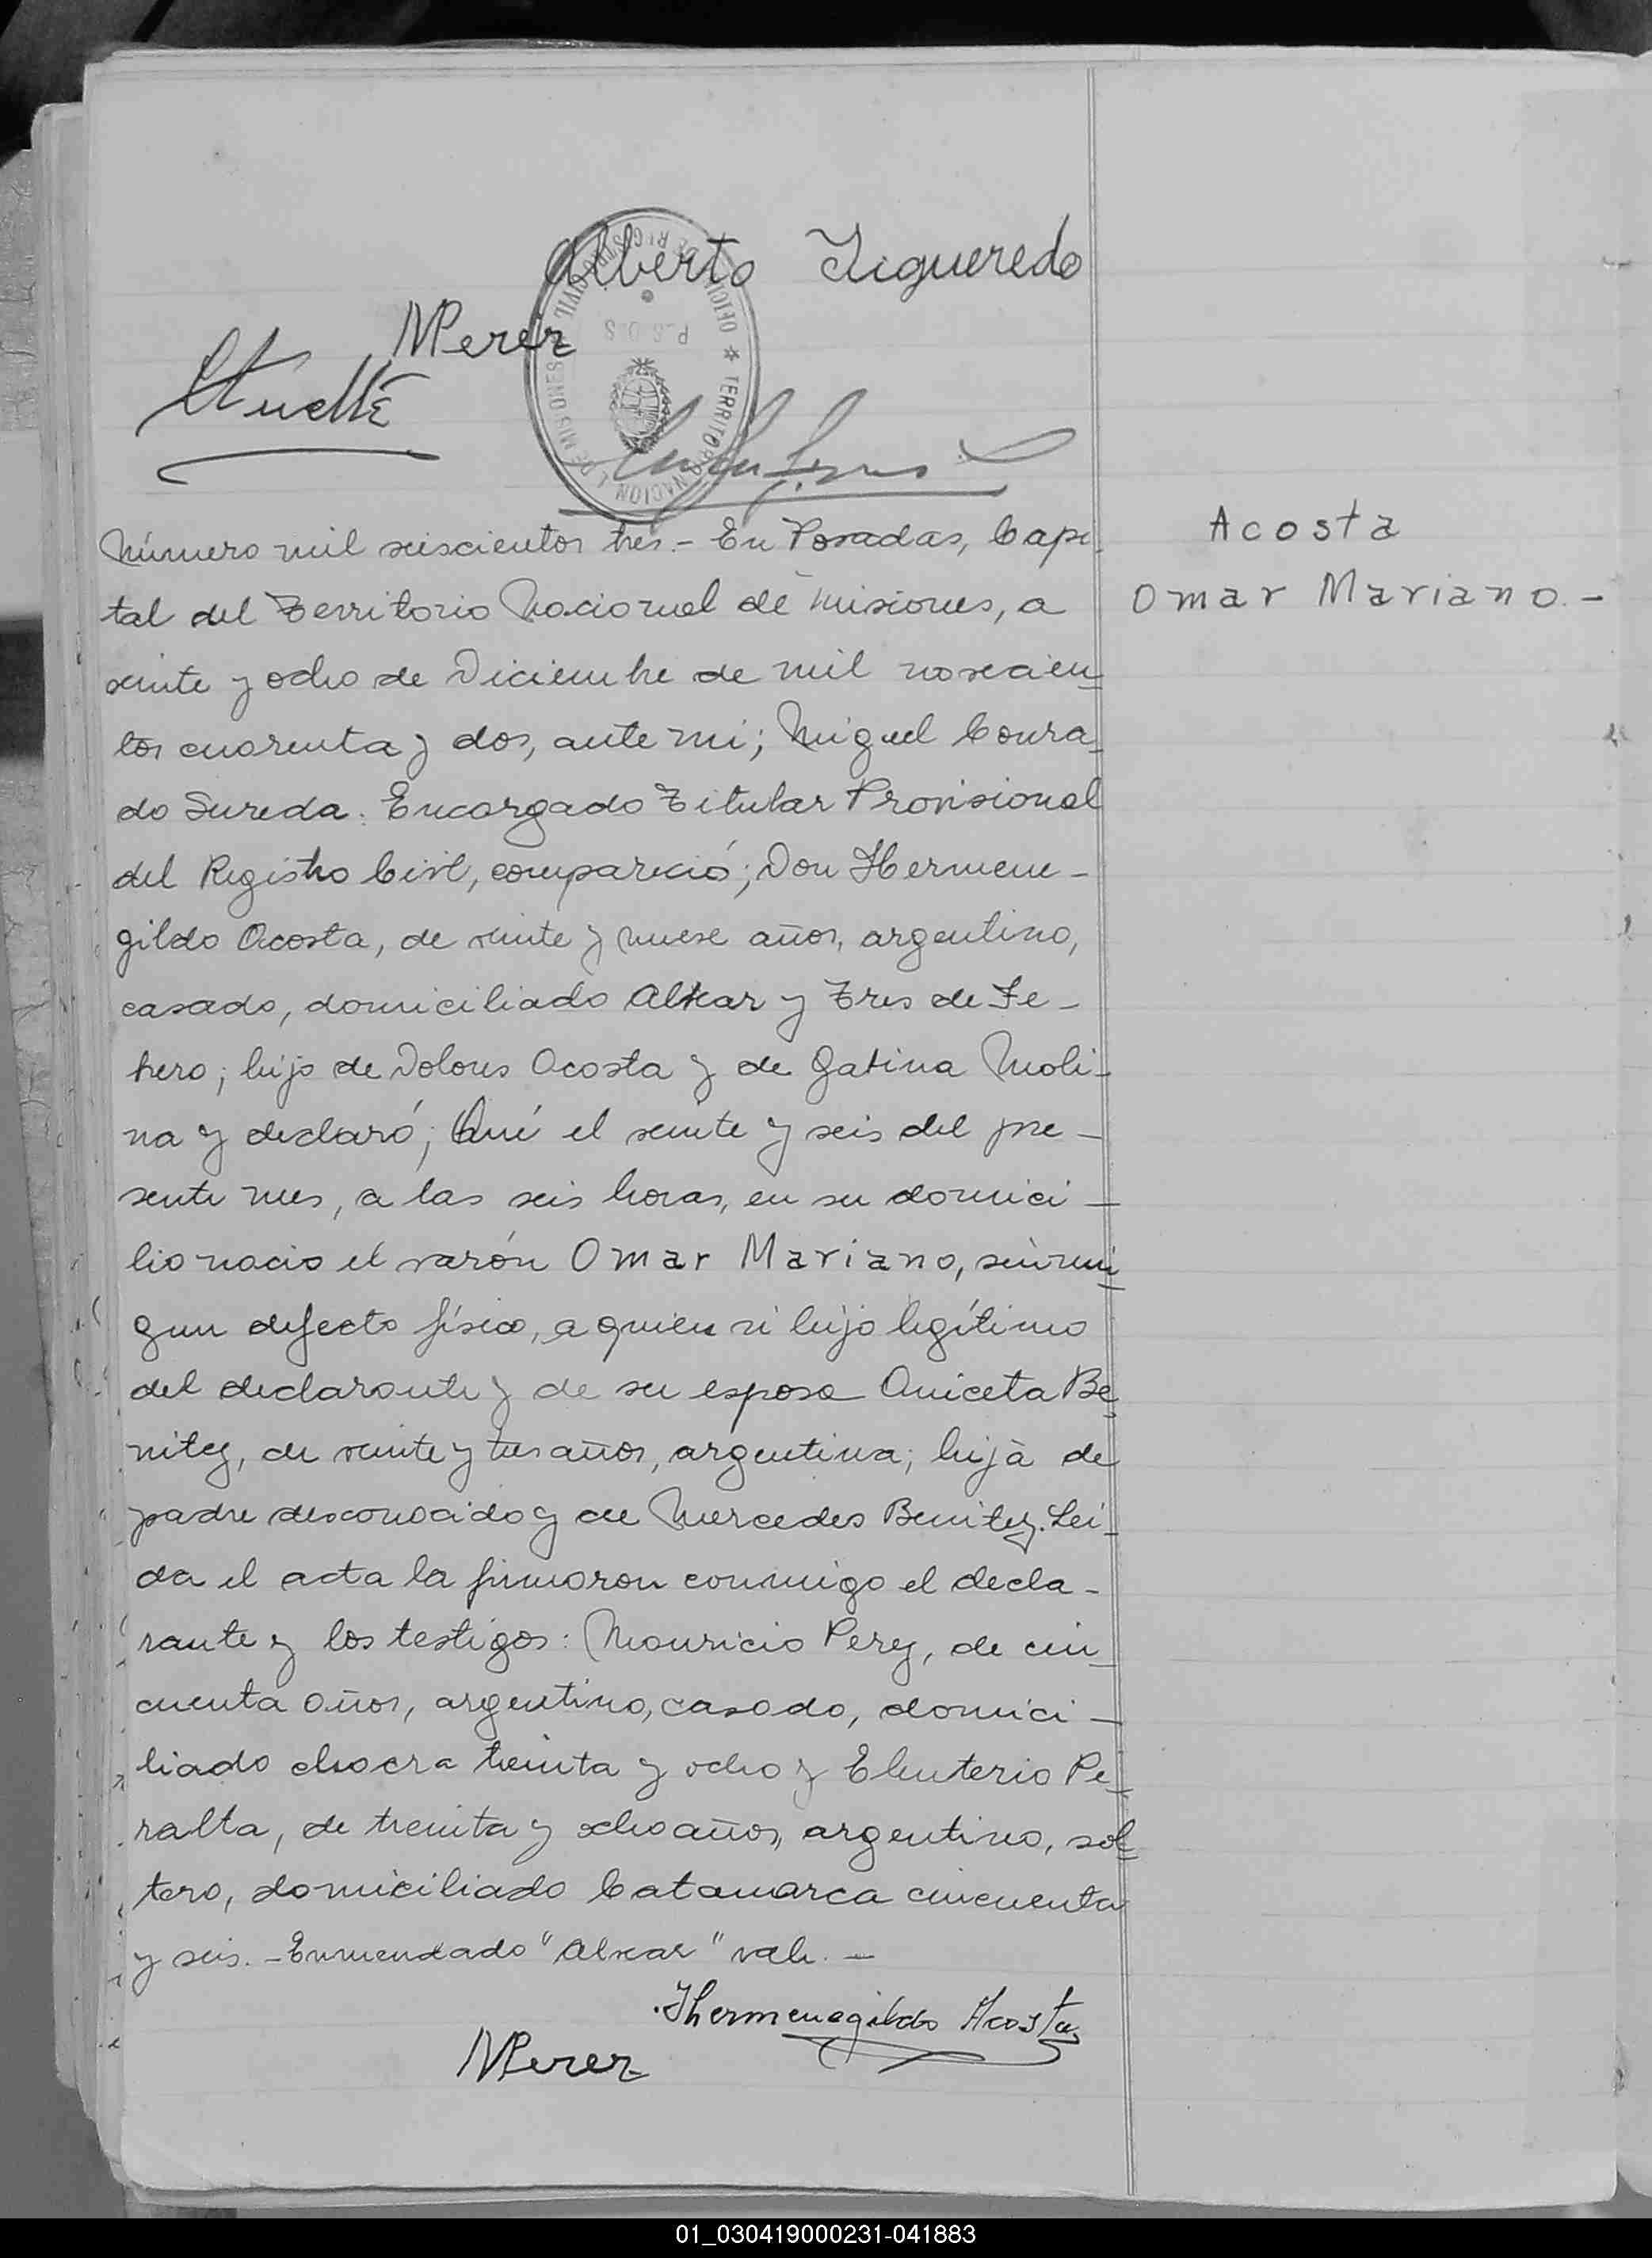 Alberto Figueredo
MPerez
OFICINA DE REGISTRO CIVIL
TERRITORIO NACIONAL DE MISIONES
Número mil seiscientos tres.- En Posadas, Capi-
tal del Territorio Nacional de Misiones, a
veinte y ocho de Diciembre de mil novecien-
tos cuarenta y dos, ante mi; Miguel Conra-
do Sureda. Encargado Titular Provisional
del Registro Civil, compareció; Don Hermene-
gildo Acosta, de veinte y nueve años, argentino,
casado, domiciliado Alvear y Tres de Fe-
brero; hijo de Dolores Acosta y de Moli-
na y declaró; Qué el veinte y seis del pre-
sente mes, a las seis horas, en su domici-
lio nacio el varón Omar Mariano, sin nin-
gun defecto físico, a quien vi hijo legítimo
del declarante y de su esposa Aniceta Be-
nitez, de veinte y tres años, argentina; hija de
padre desconocido y de Mercedes Benitez. Lei-
da el acta la firmaron conmigo el decla-
rante y los testigos: Mauricio Perez, de cin-
cuenta años, argentino, casado, domici-
liado chacra treinta y ocho y Eleuterio Pe-
ralta, de treinta y ocho años, argentino, sol-
tero, domiciliado Catamarca cincuenta
y seis.- Enmendado "Alvear" vale.-
Hermenegildo Acosta
MPerez
Acosta
Omar Mariano.-
01_030419000231-041883